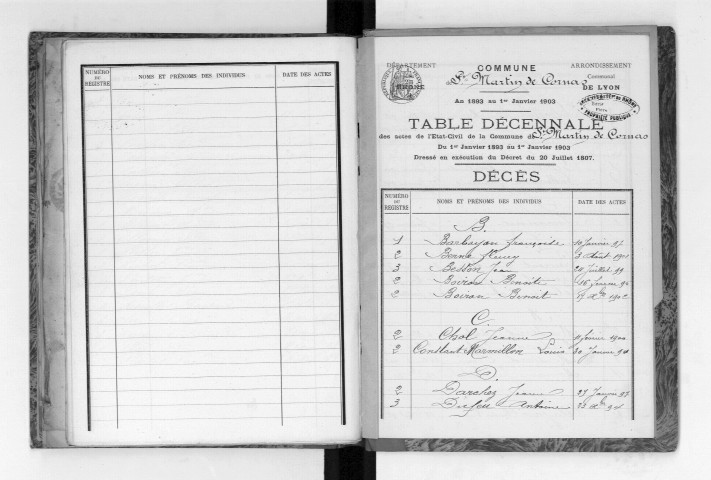 NUMÉRO DU REGISTRE NOMS ET PRÉNOMS DES INDIVIDUS DATE DES ACTES
DÉPARTEMENT DU RHÔNE
COMMUNE
de St Martin de Cornas
An 1893 au 1er Janvier 1903
ARRONDISSEMENT
Communal
DE LYON
PROPRIÉTÉ PUBLIQUE
TABLE DÉCENNALE
des actes de l'Etat-Civil de la Commune de St Martin de Cornas
Du 1er Janvier 1893 au 1er Janvier 1903
Dressé en exécution du Décret du 20 Juillet 1807.
DÉCÈS
NUMÉRO DU REGISTRE NOMS ET PRÉNOMS DES INDIVIDUS DATE DES ACTES
B.
1 Barbayon françoise 10 Janvier 97
2 Berne fleury 3 Août
3 Besson Jean 24 Juillet 99
2 Boiron Benoite 16
2 Boiron Benoit 19 Xbre 1902
C.
2 Chol Jeanne 11 février 1900
2 Constant-Marmillon Louis 30 Janvier
D.
2 Darchez Jeanne 27 Janvier 97
3 Dufour Antoine 23 Xbre